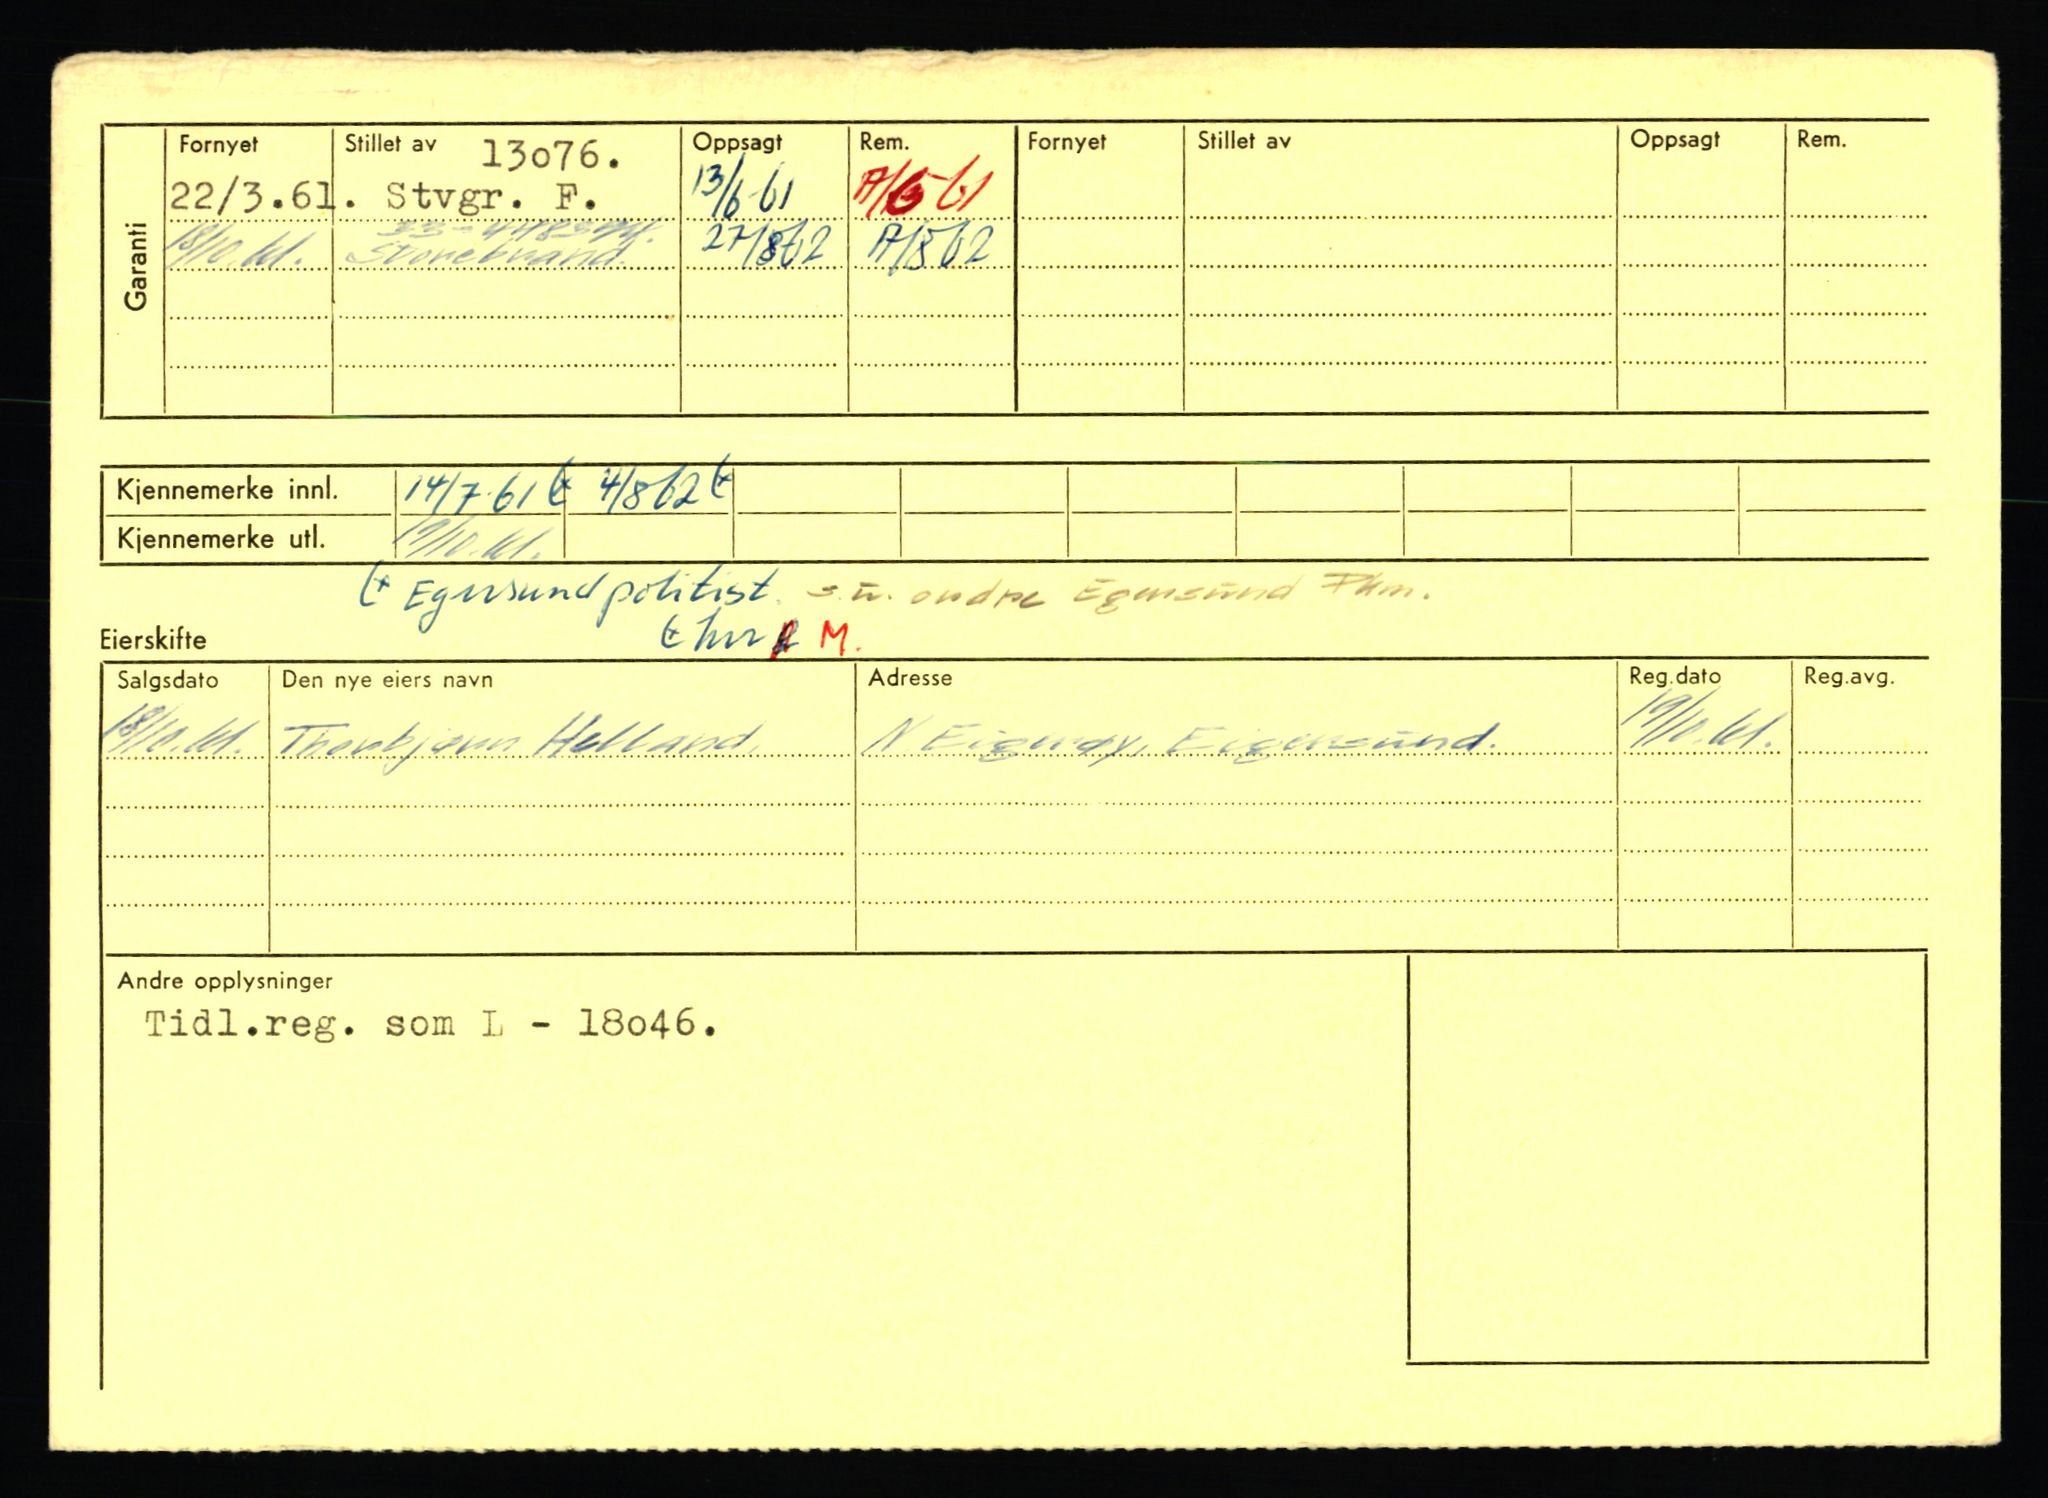 Garanti
Fornyet Stillet av 13o76. Oppsagt Rem. Fornyet Stillet av Oppsagt Rem.
22/3.61. Stvgr. F. 13/6-61
18/10.61. Storebrand. 27/862 A/862
Kjennemerke innl. 14/7-61 4/862
Kjennemerke utl. 19/10.61.
Egersund politist. s.u. ondre Egersund
M.
Eierskifte
Salgsdato Den nye eiers navn Adresse Reg.dato Reg.avg.
18/10.61. Thorbjørn Helland. N Eigerøy, Eigersund. 19/10.61.
Andre opplysninger
Tidl.reg. som L - 18o46.